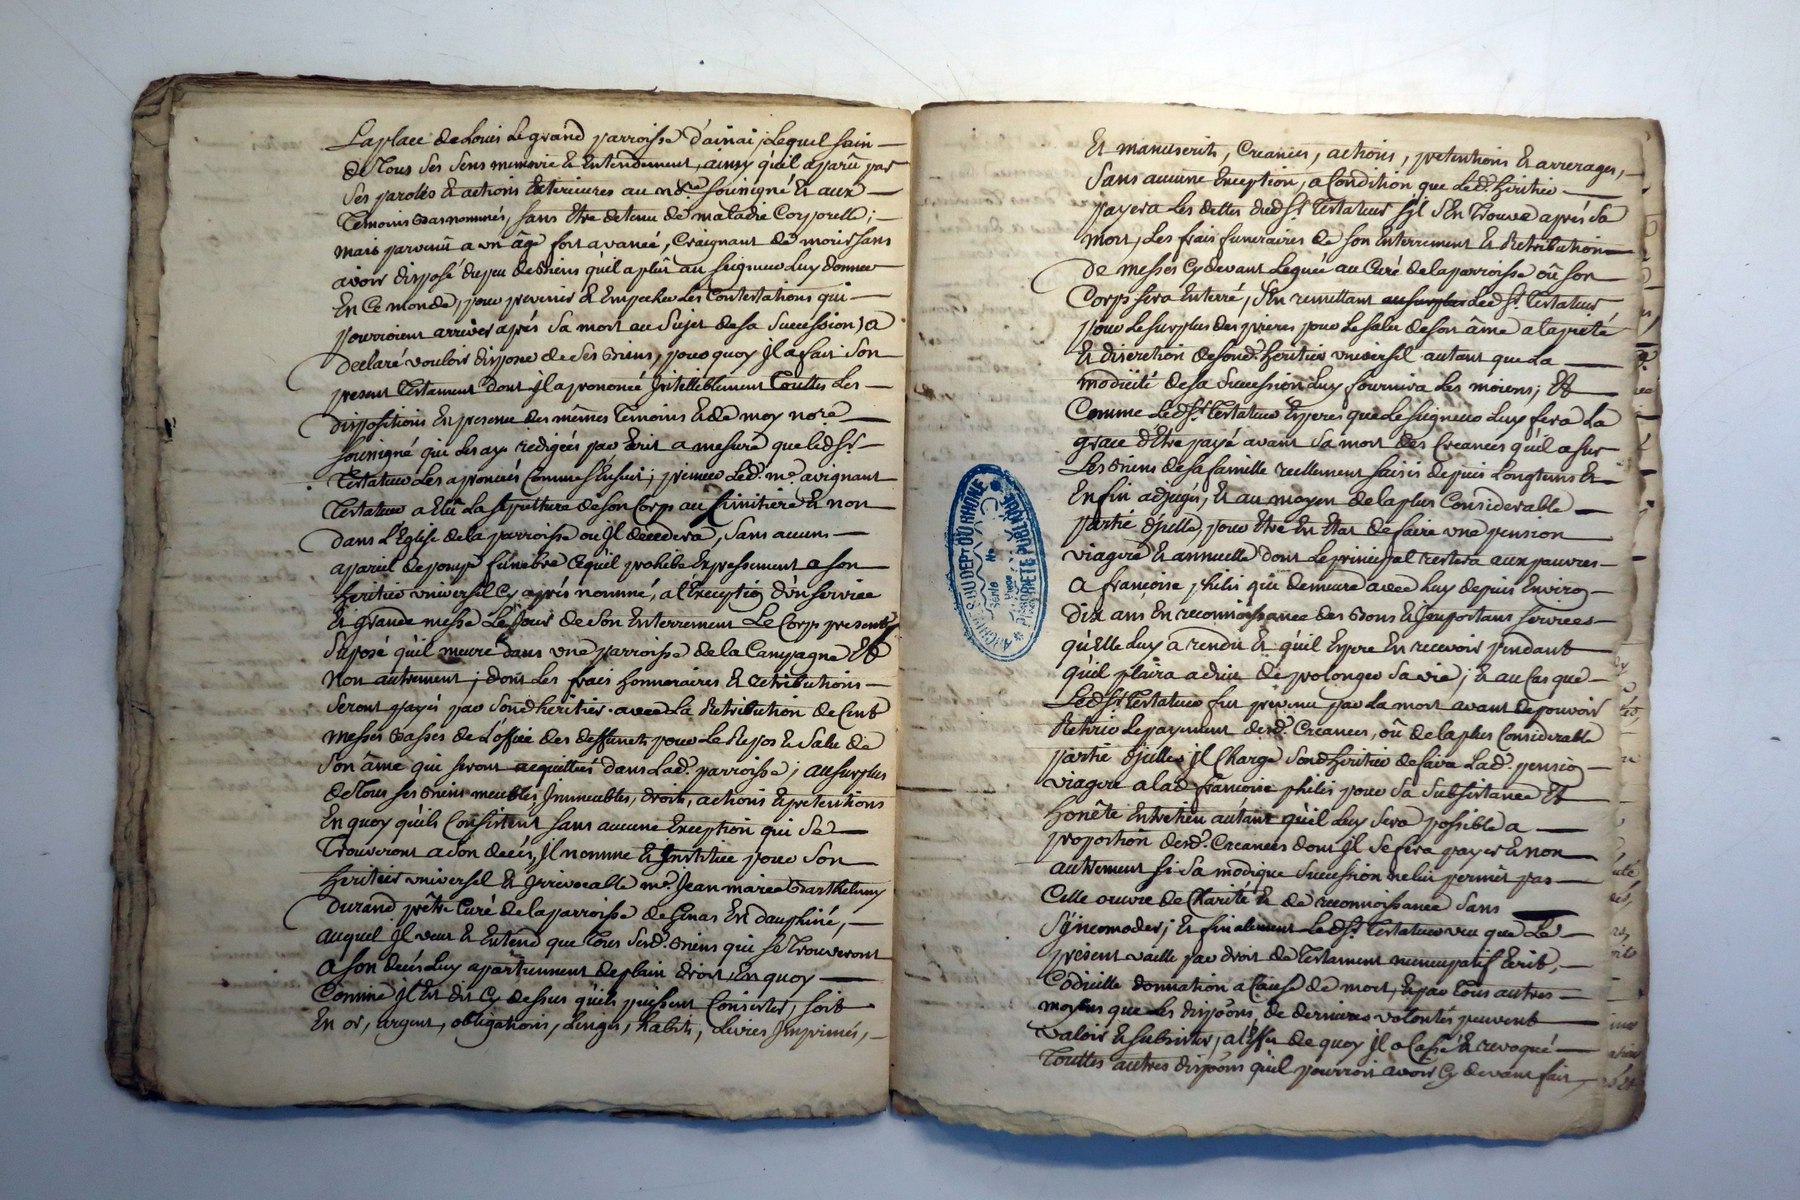 La place de Louis Le grand parroisse d'ainai, Lequel sain
de Tous ses sens memoire & Entendement, ainsy qu'il a parû par
ses paroles & actions Exterieures au no.re soussigné & aux
Temoins bas nommés, sans Etre detenu de maladie Corporelle;
mais parvenû a un âge fort avancé, Craignant de mourir sans
avoir disposé du peu de biens qu'il a plût au seigneur Luy donner
En Ce monde, pour prevenir & Empecher Les Contestations qui
pourroient arriver aprés sa mort au sujet de sa succession, a
declaré vouloir disposer de ses biens, pour quoy Jl a fait son
present Testament dont Jl a prononcé Jntelliblement Touttes Les
dispositions En presence des mêmes Temoins & de moy no.re
soussigné qui Les ay redigées par Ecrit a mesure que ledt Sr.
Testateur Les a prononcés Comme s'Ensuit; premier Led. me. avignant
Testateur a Elû La sepulture de son Corps au simitiere & non
dans L'Eglise de la parroisse ou Jl decedera, sans aucun
appareil de pompe funebre Ce qu'il prohibe Expressement a son
heritier universel Cy aprés nommé, a l'Exception d'un service
Et grande messe Le Jour de son Enterrement Le Corps present
suposé qu'il meure dans une parroisse de la Campagne Et
non autrement; dont Les frais honnoraires & retributions
seront payés par sond. heritier avec La Retribution de Cent
messes basses de L'office des deffunts pour Le Repos & salut de
son âme qui seront acquittées dans Lad. parroisse; au surplus
de Tous ses biens meubles, Jmmeubles, droits, actions & pretentions
En quoy qu'ils Consistent sans aucune Exception qui se
Trouveront a son decés, Jl nomme & Jnstitue pour son
heritier universel & Jrrevocable mr. Jean marie Barthelemy
durand prêtre Curé de la parroisse de Genas En dauphiné,
auquel Jl veut & Entend que Tous sesd. biens qui se Trouveront
a son decés Luy appartiennent de plain droit, En quoy
Comme Jl Est dit Cy dessus qu'ils puissent Consister, soit
En or, argent, obligations, Linges, habits, Livres Jmprimés,
Et manuscrits, Creances, actions, pretentions & arrerages,
sans aucune Exception, a Condition que Led. heritier
payera Les dettes dudt Sr. Testateur s'Jl s'En Trouve aprés sa
mort, Les frais funeraires de son Enterrement & Retribution
de messes Cy devant Leguée au Curé de la parroisse où son
Corps sera Enterré, s'En remettant au surplus Ledt Sr. Testateur
pour Le surplus des prieres pour Le salut de son âme a la pieté
Et discretion de sond. heritier universel autant que La
modicité de sa succession Luy fournira Les moiens; Et
Comme Ledt Sr. Testateur Espere que Le seigneur Luy fera La
grace d'Etre payé avant sa mort des Creances qu'il a sur
Les biens de sa famille reellement saisis depuis Longtems &
Enfin adjugés, & au moyen de la plus Considerable
partie d'Jcelles, pour Etre En Etat de faire une pension
viagere & annuelle dont Le principal restera aux pauvres
a francoise philis qui demeure avec Luy depuis Environ
dix ans En reconnoissance des bons & Jmportans services
qu'Elle Luy a rendu & qu'il Espere En recevoir pendant
qu'il plaira a dieu de prolonger sa vie; & au Cas que
Ledt Sr. Testateur fut prevenu par La mort avant de pouvoir
Retirer Le payement desd. Creances, où de la plus Considerable
partie d'Jcelles Jl Charge sond. heritier de faire Lad. pension
viagere a lad. francoise philis pour sa subsistance Et
honête Entretien autant qu'il Luy sera possible a
proportion desd. Creances dont Jl se fera payer & non
autrement si sa modique succession ne lui permet pas
Cette œuvre de Charité & de reconnoissance sans
s'jncomoder; Et finalement Ledt Sr. Testateur veu que Le
present vaille par droit de Testament nuncupatif Ecrit,
Codicille donnation a Cause de mort, & par Tous autres
moyens que Les dispôons de derniere volontés peuvent
valoir & subsister, a l'Effet de quoy Jl a Cassé & revoqué
Touttes autres dispôons qu'il pourroit avoir Cy devant fait
ARCHIVES DU DEPT DU RHONE
PROPRIETE PUBLIQUE